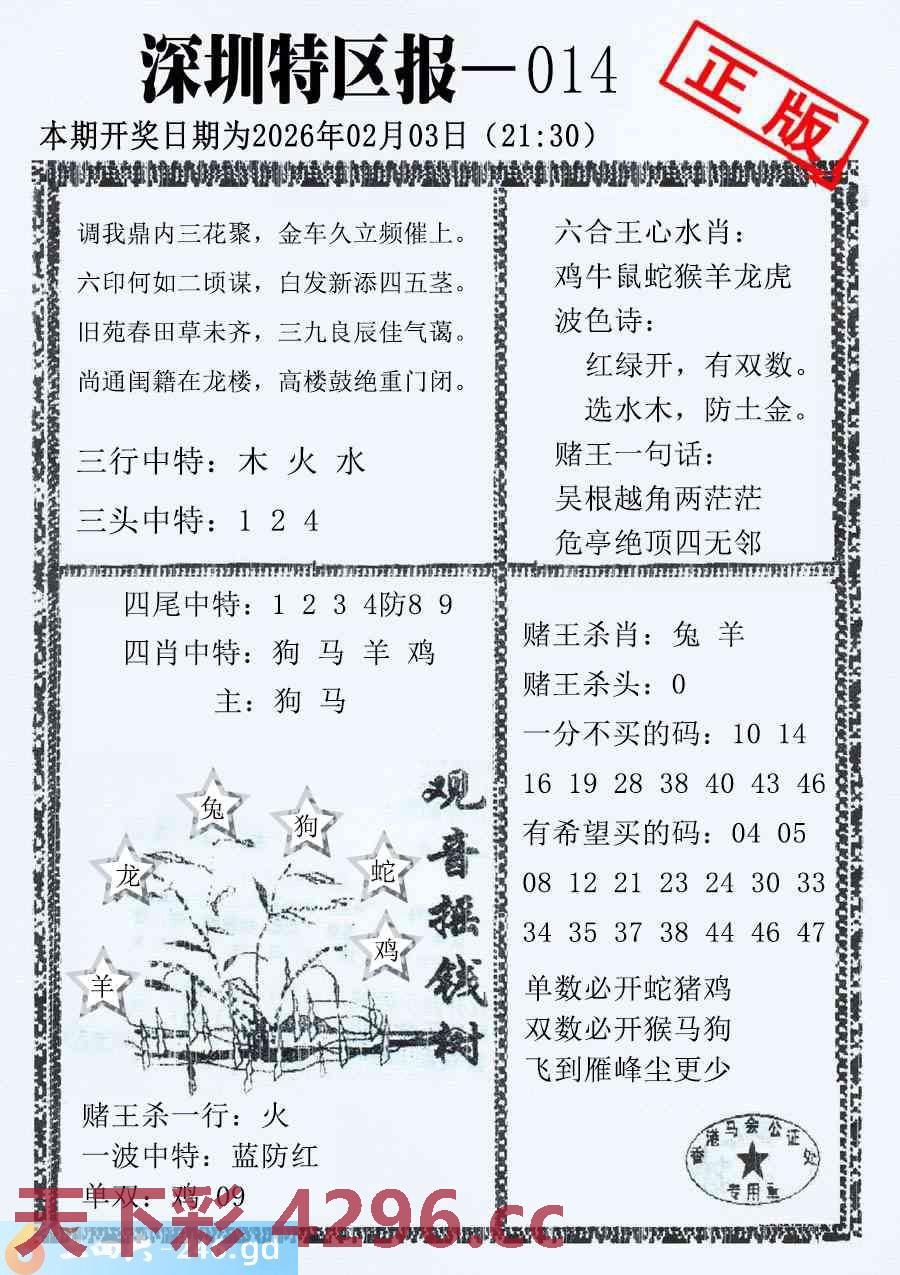 深圳特区报—014
正版
本期开奖日期为2026年02月03日（21:30）
调我鼎内三花聚，金车久立频催上。
六印何如二顷谋，白发新添四五茎。
旧苑春田草未齐，三九良辰佳气蔼。
尚通闺籍在龙楼，高楼鼓绝重门闭。
三行中特：木 火 水
三头中特：1 2 4
六合王心水肖：
鸡牛鼠蛇猴羊龙虎
波色诗：
红绿开，有双数。
选水木，防土金。
赌王一句话：
吴根越角两茫茫
危亭绝顶四无邻
四尾中特：1 2 3 4防8 9
四肖中特：狗 马 羊 鸡
主：狗 马
兔
狗
龙
蛇
鸡
羊
观音摇钱树
赌王杀一行：火
一波中特：蓝防红
单双：鸡 09
赌王杀肖：兔 羊
赌王杀头：0
一分不买的码：10 14
16 19 28 38 40 43 46
有希望买的码：04 05
08 12 21 23 24 30 33
34 35 37 38 44 46 47
单数必开蛇猪鸡
双数必开猴马狗
飞到雁峰尘更少
香港马会公证处
专用章
天下彩4296.cc